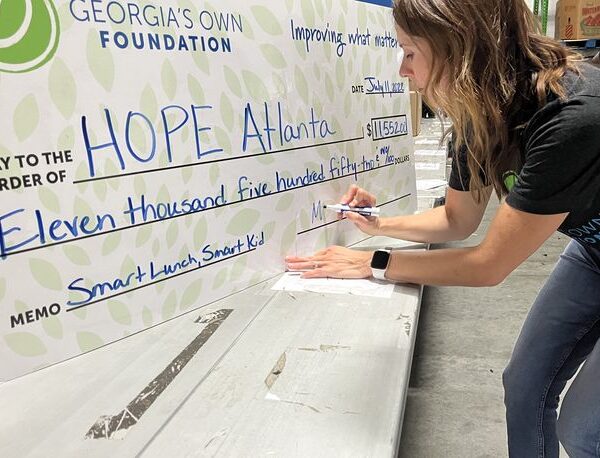 GEORGIA'S OWN
FOUNDATION
Improving what matter
DATE July 11, 2022
AY TO THE
RDER OF HOPE Atlanta $ 11,552.00
Eleven thousand five hundred fifty-two & no/100 DOLLARS
MEMO Smart Lunch, Smart Kid
M